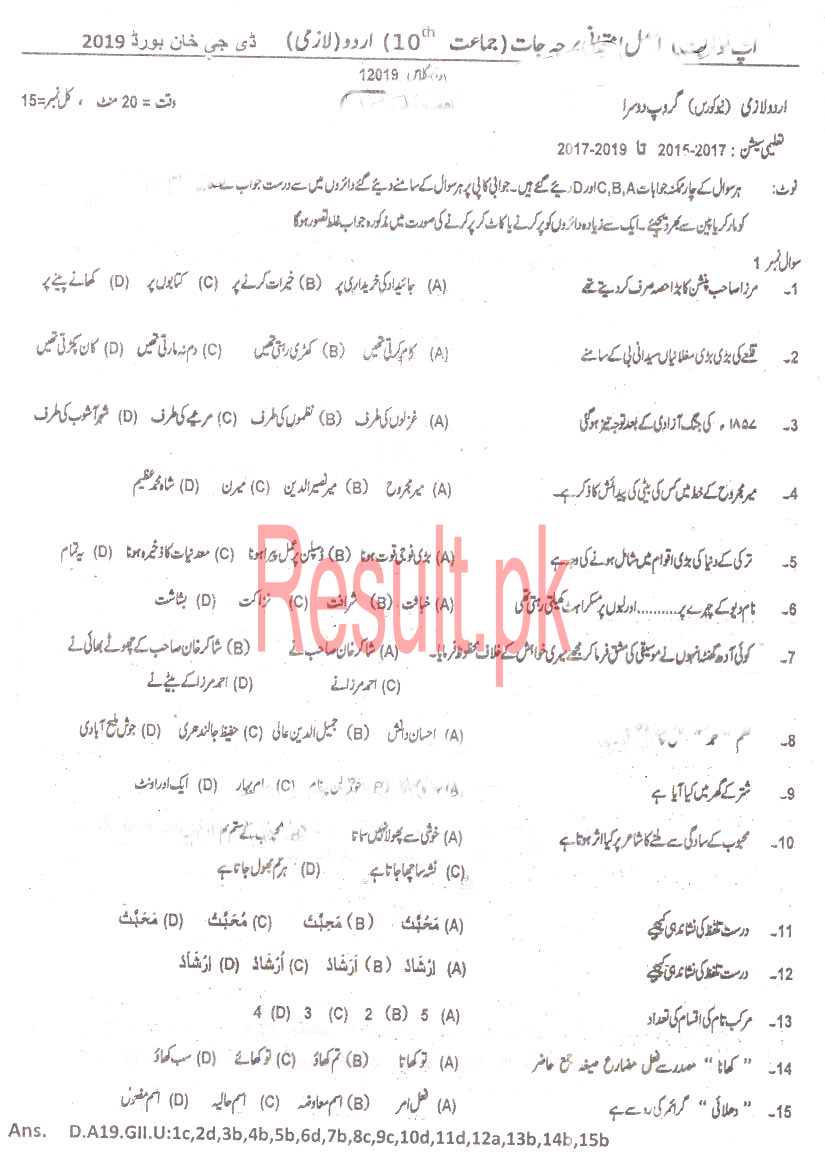 پرچہ جات (جماعت 10th) اردو (لازمی) ڈی جی خان بورڈ 2019
12019
اردو لازمی (نیو کورس) گروپ دوسرا وقت = 20 منٹ ، کل نمبر=15
تعلیمی سیشن : 2015-2017 تا 2017-2019
نوٹ: ہر سوال کے چار ممکنہ جوابات C,B,A اور D دیئے گئے ہیں۔ جوابی کاپی پر ہر سوال کے سامنے دیئے گئے دائروں میں سے درست جواب کے
کو مار کر یا پین سے بھر دیجئے۔ ایک سے زیادہ دائروں کو پر کرنے یا کاٹ کر پر کرنے کی صورت میں مذکورہ جواب غلط تصور ہوگا
سوال نمبر 1
1۔ مرزا صاحب پنشن کا بڑا حصہ صرف کر دیتے تھے (A) جائیداد کی خریداری پر (B) خیرات کرنے پر (C) کتابوں پر (D) کھانے پینے پر
2۔ قلعے کی بڑی بڑی مغلانیاں سیدانی بی کے سامنے (A) کام کرتی تھیں (B) کھڑی رہتی تھیں (C) دم نہ مارتی تھیں (D) کان پکڑتی تھیں
3۔ ۱۸۵۷ء کی جنگ آزادی کے بعد توجہ تیز ہو گئی (A) غزلوں کی طرف (B) نظموں کی طرف (C) مرثیے کی طرف (D) شہر آشوب کی طرف
4۔ میر مجروح کے خط میں کس کی بیٹی کی پیدائش کا ذکر ہے۔ (A) میر مجروح (B) میر نصیر الدین (C) میرن (D) شاہ محمد عظیم
5۔ ترکی کے دنیا کی بڑی اقوام میں شامل ہونے کی وجہ ہے (A) بڑی فوجی قوت ہونا (B) ڈسپلن پر عمل پیرا ہونا (C) معدنیات کا ذخیرہ ہونا (D) یہ تمام
6۔ نام دیو کے چہرے پر..........اور لبوں پر مسکراہٹ کھیلتی رہتی تھی (A) خباثت (B) شرافت (C) نزاکت (D) بشاشت
7۔ کوئی آدھ گھنٹہ انہوں نے موسیقی کی مشق فرما کر مجھے میری خواہش کے خلاف محظوظ فرمایا۔ (A) شاکر خان صاحب نے (B) شاکر خان صاحب کے چھوٹے بھائی نے
(C) احمد مرزا نے (D) احمد مرزا کے بیٹے نے
8۔ نظم "حمد" (A) احسان دانش (B) جمیل الدین عالی (C) حفیظ جالندھری (D) جوش ملیح آبادی
9۔ شتر کے گھر میں کیا آیا ہے (A) (B) (C) امر بہار (D) ایک اور اونٹ
10۔ محبوب کے سادگی سے ملنے کا شاعر پر کیا اثر ہوتا ہے (A) خوشی سے پھولا نہیں سماتا (B) محبوب کے ستم
(C) نشہ سا چھا جاتا ہے (D) ہر غم بھول جاتا ہے
11۔ درست تلفظ کی نشاندہی کیجیے (A) مَحُبَّتْ (B) مَحِبَّتْ (C) مُحَبَّتْ (D) مَحَبَّتْ
12۔ درست تلفظ کی نشاندہی کیجیے (A) اِرْشَادْ (B) اَرْشَادْ (C) اُرْشَادْ (D) اِرْشَادْ
13۔ مرکب تام کی اقسام کی تعداد (A) 5 (B) 2 (C) 3 (D) 4
14۔ "کھانا" مصدر سے فعل مضارع صیغہ جمع حاضر (A) تو کھاتا (B) تم کھاؤ (C) تو کھائے (D) سب کھاؤ
15۔ "دھلائی" گرائمر کی رو سے ہے (A) فعل امر (B) اسم معاوضہ (C) اسم حالیہ (D) اسم مفعول
Ans. D.A19.GII.U:1c,2d,3b,4b,5b,6d,7b,8c,9c,10d,11d,12a,13b,14b,15b
Result.pk